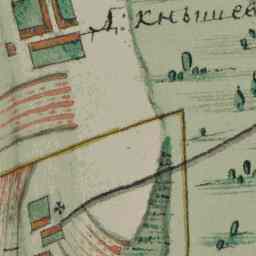 Д: Кнышев